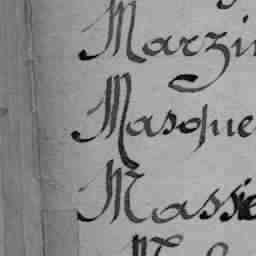 Marzi
Masque
Massie